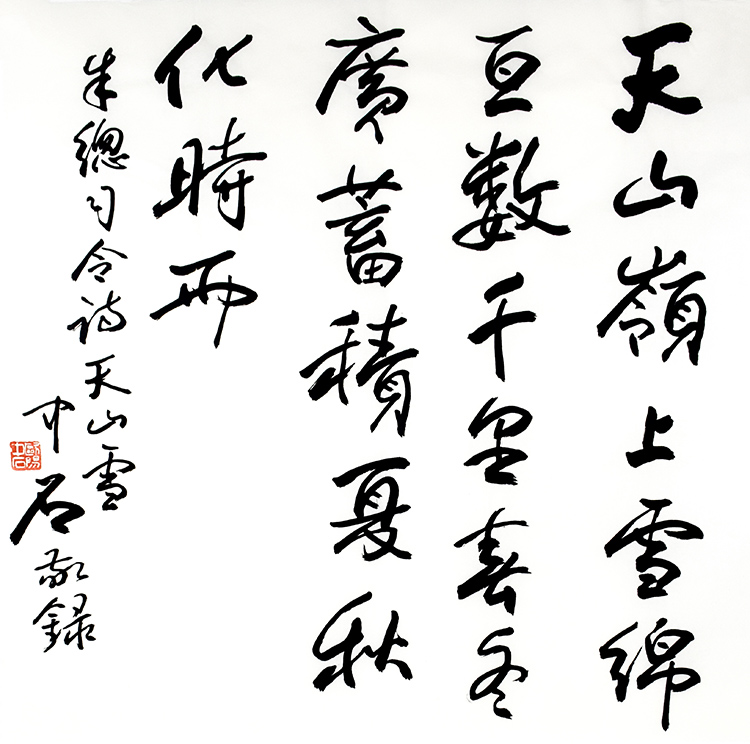 天山嶺上雪綿
亘数千里春冬
廣蓄積夏秋
化時雨
朱總司令诗天山雪
中石敬録
歐陽中石